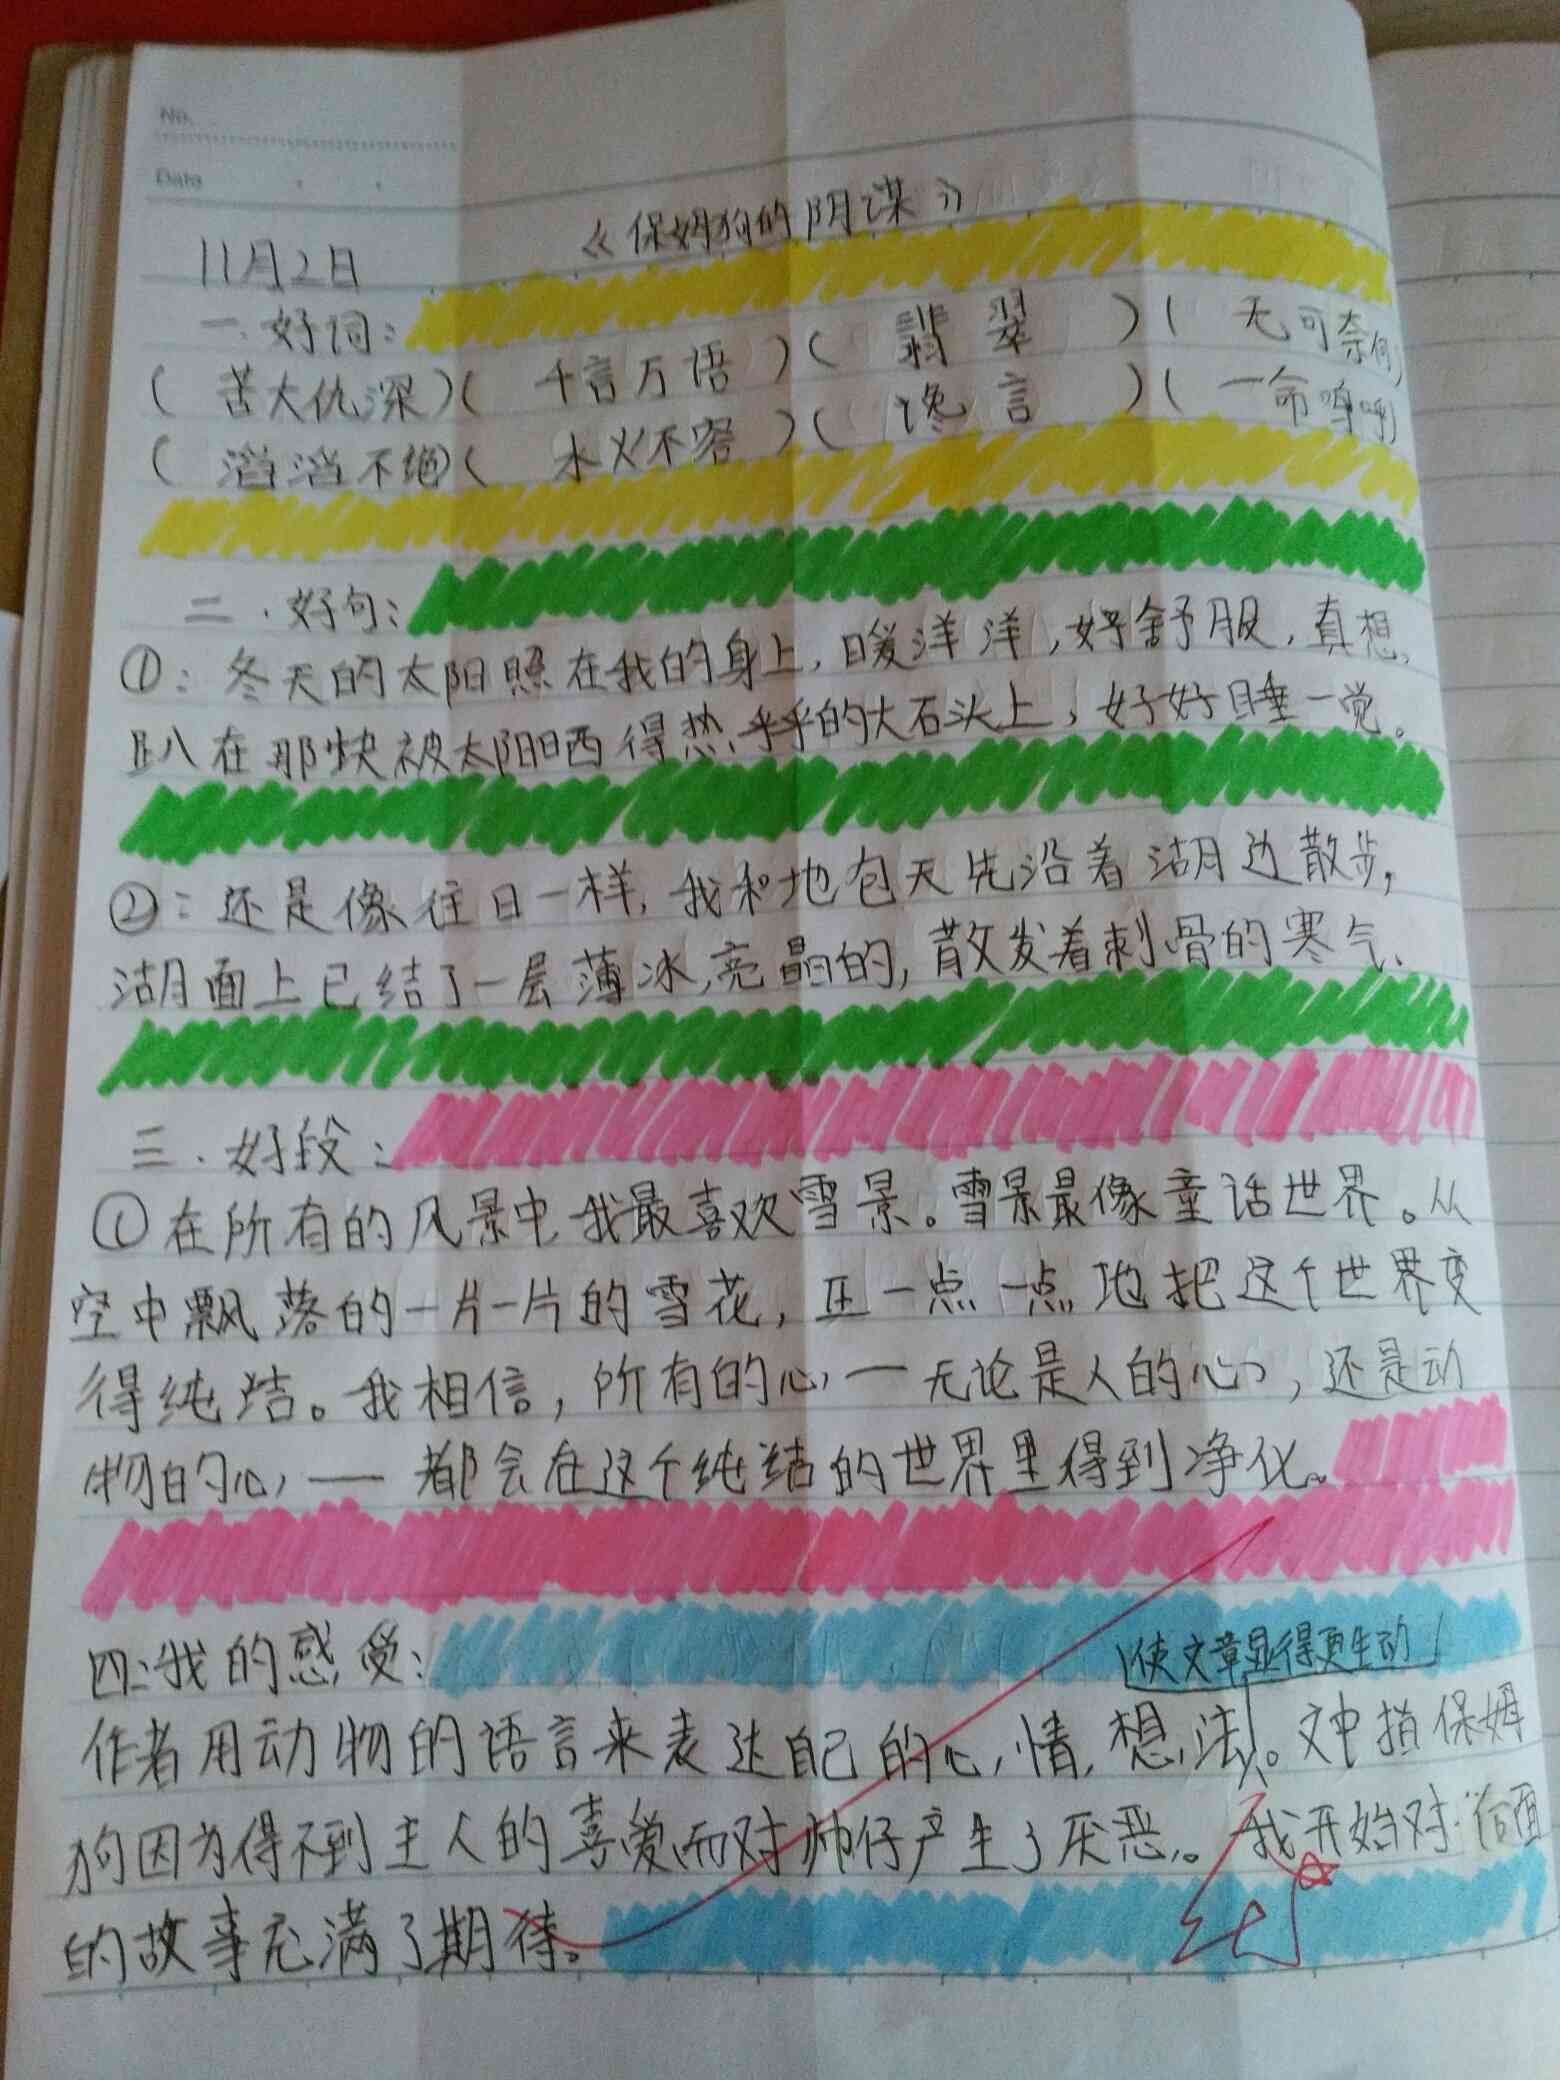 No.
Date
《保姆狗的阴谋》
11月2日
一.好词:
(苦大仇深)(千言万语)(翡翠)(无可奈何)
(滔滔不绝)(水火不容)(谗言)(一命呜呼)
二.好句:
①:冬天的太阳照在我的身上,暖洋洋,好舒服,真想,
趴在那快被太阳晒得热乎乎的大石头上,好好睡一觉。
②:还是像往日一样,我和地包天先沿着湖边散步,
湖面上已结了一层薄冰,亮晶的,散发着刺骨的寒气、
三.好段:
①在所有的风景中,我最喜欢雪景。雪景最像童话世界。从
空中飘落的一片一片的雪花,正一点一点地把这个世界变
得纯洁。我相信,所有的心一无论是人的心,还是动
物的心,——都会在这个纯结的世界里得到净化。
四:我的感受:
使文章显得更生动
作者用动物的语言来表达自己的心情,想法。文中指保姆
狗因为得不到主人的喜爱而对帅仔产生了厌恶。我开始对后面
的故事充满了期待。